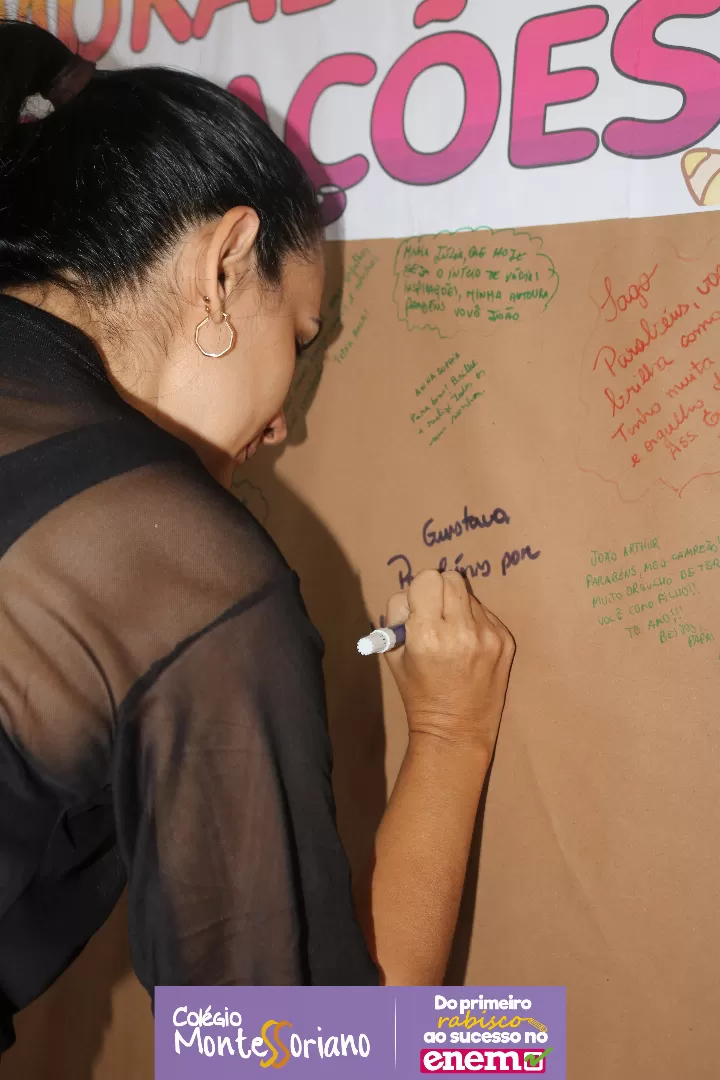 MURAL
AÇÕES
MINHA JÚLIA, QUE HOJE
SEJA O INÍCIO DE VÁRIAS
INSPIRAÇÕES, MINHA AUTORA
PARABÉNS VOVÔ JOÃO
ANNA SOPHIA
Parabéns! Brilhe
Iago
Parabéns, você
brilha como
Tenho muita
e orgulho de
Ass
Gustavo
Parabéns por
JOÃO ARTHUR
PARABÉNS, MEU CAMPEÃO!
MUITO ORGULHO DE TER
VOCÊ COMO FILHO!!
TE AMO!!!
BEIJOS,
PAPAI
Colégio
Montessoriano
Do primeiro
rabisco
ao sucesso no
enem